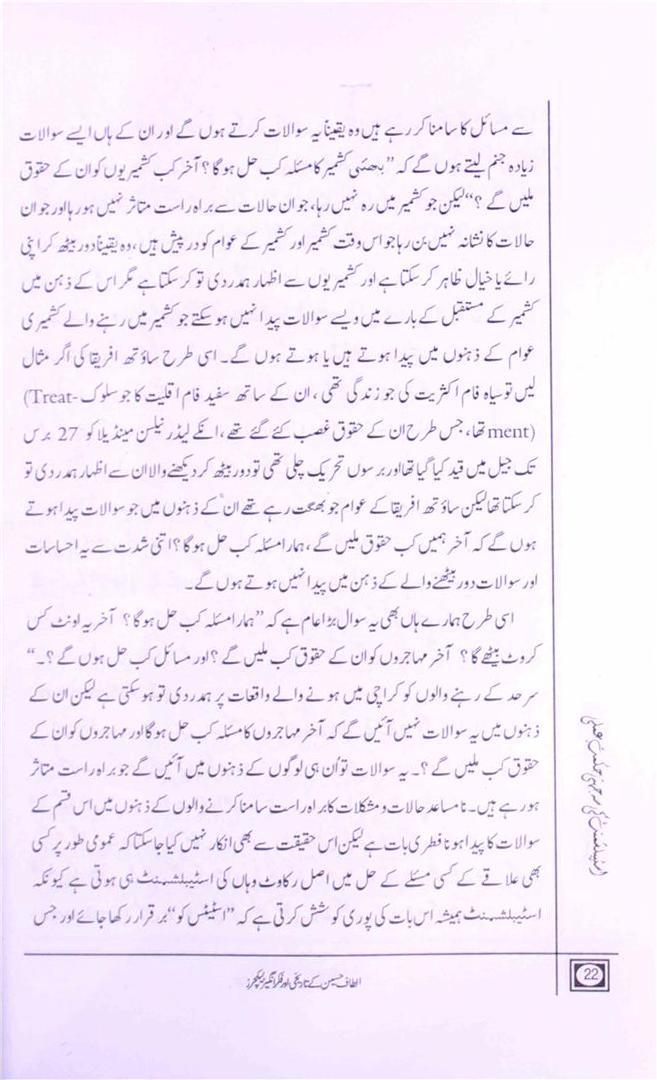 سے مسائل کا سامنا کر رہے ہیں وہ یقیناً یہ سوالات کرتے ہوں گے اور ان کے ہاں ایسے سوالات
زیادہ جنم لیتے ہوں گے کہ ”بھئی کشمیر کا مسئلہ کب حل ہوگا؟ آخر کب کشمیریوں کو ان کے حقوق
ملیں گے؟“ لیکن جو کشمیر میں رہ نہیں رہا، جو ان حالات سے براہ راست متاثر نہیں ہو رہا اور جو ان
حالات کا نشانہ نہیں بن رہا جو اس وقت کشمیر اور کشمیر کے عوام کو درپیش ہیں، وہ یقیناً دور بیٹھ کر اپنی
رائے یا خیال ظاہر کر سکتا ہے اور کشمیریوں سے اظہار ہمدردی تو کر سکتا ہے مگر اس کے ذہن میں
کشمیر کے مستقبل کے بارے میں ویسے سوالات پیدا نہیں ہو سکتے جو کشمیر میں رہنے والے کشمیری
عوام کے ذہنوں میں پیدا ہوتے ہیں یا ہوتے ہوں گے۔ اسی طرح ساؤتھ افریقا کی اگر مثال
لیں تو سیاہ فام اکثریت کی جو زندگی تھی، ان کے ساتھ سفید فام اقلیت کا جو سلوک (Treat-
ment) تھا، جس طرح ان کے حقوق غصب کئے گئے تھے، انکے لیڈر نیلسن مینڈیلا کو 27 برس
تک جیل میں قید کیا گیا تھا اور برسوں تحریک چلی تھی تو دور بیٹھ کر دیکھنے والا ان سے اظہار ہمدردی تو
کر سکتا تھا لیکن ساؤتھ افریقا کے عوام جو بھگت رہے تھے ان کے ذہنوں میں جو سوالات پیدا ہوتے
ہوں گے کہ آخر ہمیں کب حقوق ملیں گے، ہمارا مسئلہ کب حل ہوگا؟ اتنی شدت سے یہ احساسات
اور سوالات دور بیٹھنے والے کے ذہن میں پیدا نہیں ہوتے ہوں گے۔
اسی طرح ہمارے ہاں بھی یہ سوال بڑا عام ہے کہ ”ہمارا مسئلہ کب حل ہوگا؟ آخر یہ اونٹ کس
کروٹ بیٹھے گا؟ آخر مہاجروں کو ان کے حقوق کب ملیں گے؟ اور مسائل کب حل ہوں گے؟۔“
سرحد کے رہنے والوں کو کراچی میں ہونے والے واقعات پر ہمدردی تو ہو سکتی ہے لیکن ان کے
ذہنوں میں یہ سوالات نہیں آئیں گے کہ آخر مہاجروں کا مسئلہ کب حل ہوگا اور مہاجروں کو ان کے
حقوق کب ملیں گے؟۔ یہ سوالات تو اُن ہی لوگوں کے ذہنوں میں آئیں گے جو براہ راست متاثر
ہو رہے ہیں۔ نامساعد حالات و مشکلات کا براہ راست سامنا کرنے والوں کے ذہنوں میں اس قسم کے
سوالات کا پیدا ہونا فطری بات ہے لیکن اس حقیقت سے بھی انکار نہیں کیا جا سکتا کہ عمومی طور پر کسی
بھی علاقے کے کسی مسئلے کے حل میں اصل رکاوٹ وہاں کی اسٹیبلشمنٹ ہی ہوتی ہے کیونکہ
اسٹیبلشمنٹ ہمیشہ اس بات کی پوری کوشش کرتی ہے کہ ”اسٹیٹس کو“ برقرار رکھا جائے اور جس
اسٹیبلشمنٹ کی سہ جہتی حکمت عملی
22
الطاف حسین کے تاریخی اور فکر انگیز لیکچرز